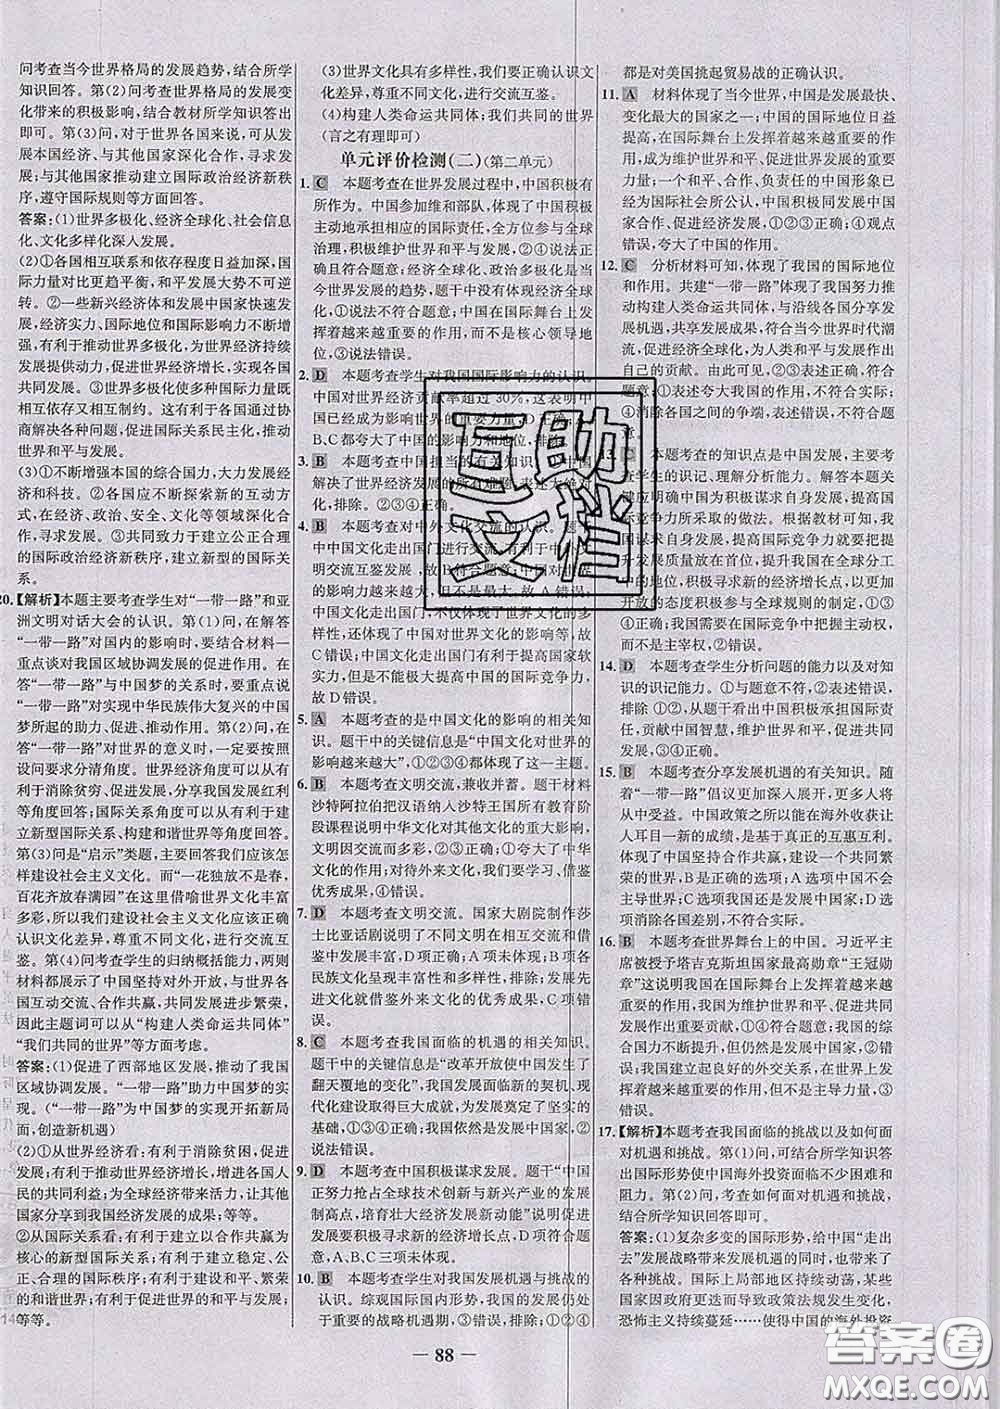 问考查当今世界格局的发展趋势,结合所学
知识回答。第(2)问考查世界格局的发展变
化带来的积极影响,结合教材所学知识答出
即可。第(3)问,对于世界各国来说,可以从
发展本国经济、与其他国家深化合作、共同
与其他国家推动建立国际政治经济新秩
序,遵守国际规则等方面回答。
答案:(1)世界多极化、经济全球化、社会信息
化、文化多样化深入发展。
(2)①各国相互联系和依存程度日益加深,国
际力量对比更趋平衡,和平发展大势不可逆
转。②一些新兴经济体和发展中国家快速发
展,经济实力、国际地位和国际影响力不断增
强,有利于推动世界多极化,为世界经济持续
发展提供动力,促进世界经济增长,实现各国
共同发展。③世界多极化使多种国际力量既
相互依存又相互制约。这有利于各国通过协
商解决各种问题,促进国际关系民主化,维护
世界和平与发展。
(3)①不断增强本国的综合国力,大力发展经
济和科技。②各国应不断探索新的互动方
式,在经济、政治、安全、文化等领域深化合
作。③共同致力于建立公正合理的
国际政治经济新秩序,建立新型的国际关
系。
20.【解析】本题主要考查学生对“一带一路”和亚
洲文明对话大会的认识。第(1)问,在解答
“一带一路”对国内的影响时,要结合材料一
重点谈对我国区域协调发展的促进作用。在
答“一带一路”与中国梦的关系时,要重点说
“一带一路”对实现中华民族伟大复兴的中国
梦所起的助力、促进、推动作用。第(2)问,在
答“一带一路”对世界的意义时,一定要按照
设问要求分清角度。世界经济角度可以从有
利于消除贫困、促进世界发展,分享我国发展红
利等角度回答;国际关系角度可以从有利于
建立新型国际关系、构建和谐世界等角度回答。
第(3)问是“启示”类题,主要回答我们应该怎
样建设社会主义文化。而“一花独放不是春,
百花齐放春满园”在这里借喻世界文化丰富
多彩,所以我们建设社会主义文化应该正确
认识文化差异,尊重不同文化,进行交流互
鉴。第(4)问考查学生的归纳概括能力,两则
材料都展示了中国坚持对外开放,与世界各
国互动交流、合作共赢,共同发展进步繁荣,
因此主题词可以从“构建人类命运共同体”
“我们共同的世界”等方面考虑。
答案:(1)促进了西部地区发展,推动了我国
区域协调发展。“一带一路”助力中国梦的实
现。(“一带一路”为中国梦的实现开拓新局
面,创造新机遇)
(2)①从世界经济看:有利于消除贫困,促进
发展;有利于推动世界经济增长,增进各国人
民的共同利益;为全球经济增长带来机遇,让其他
国家分享到我国经济发展的成果;等等。
②从国际关系看:有利于建立以合作共赢为
核心的新型国际关系;有利于建立稳定、公
正、合理的国际秩序;有利于构建和平、繁荣
的和谐世界;有利于促进世界的和平与发展;
等等。
(3)世界文化具有多样性,我们要正确认识文
化差异,尊重不同文化,进行交流互鉴。
(4)构建人类命运共同体;我们共同的世界
(言之有理即可)
单元评价检测(二)(第二单元)
1. C 本题考查在世界发展过程中,中国积极有
所作为。中国参加维和部队,体现了中国积极
主动地承担相应的国际责任,全方位参与全球
治理,积极维护世界和平与发展,②④说法正
确且符合题意;经济全球化、政治多极化是当
今世界发展的趋势,题干中没有体现经济全球
化,①不符合题意;中国在国际舞台上发
挥着越来越重要的作用,而不是核心领导地
位,③说法错误。
2. D 本题考查学生对我国国际影响力的认识。
中国对世界经济贡献率超过30%,这表明中
国已经成为影响世界的重要力量,D正确;A、
B、C都夸大了中国的影响力和地位,排除。
3. B 本题考查中国担当的有关知识。中国
解决了世界经济发展的所有难题,说法太绝
对,排除。②③④正确。
4. B 本题考查对中外文化交流的认识。题
干中中国文化走出国门进行交流,有利于
文化交流互鉴发展,故B符合题意;中国文化的
影响力越来越大,故A错误;
中国文化走出国门,不仅体现了世界文化的影响,
还体现了中国对世界文化的影响等,故
C错误;中国文化走出国门有利于提高国家软
实力,但不能极大提高中国的国际竞争力,
故D错误。
5. A 本题考查的是中国文化的影响的相关知
识。题干中的关键信息是“中国文化对世界的
影响越来越大”,①②③④都符合题意。
6. B 本题考查文明交流,兼收并蓄。题干材料
沙特阿拉伯把汉语纳入沙特王国所有教育阶
段课程说明中华文化对其他文化的重大影响,
文明因交流而多彩,②③正确;①夸大了中华
文化的作用;对待外来文化,我们要学习、借鉴
优秀成果,④错误。
7. D 本题考查文明交流。国家大剧院制作莎
士比亚话剧说明了不同文明在交流互鉴和借
鉴中发展,D项正确;A项未体现;B项各
民族文化呈现丰富性和多样性,排除;发展先
进文化就需借鉴外来文化的优秀成果,C项错
误。
8. C 本题考查我国面临的机遇的相关知识。
题干中的关键信息是“改革开放使中国发生了
翻天覆地的变化”,我国发展面临新的契机,现
代化建设积累了雄厚的物质基础,奠定了坚实的
基础,①③④正确;我国依然是发展中国家,②
说法错误。
9. D 本题考查中国积极谋求发展。题干“中国
正努力抢占全球技术创新与新兴产业的发展
制高点,培育壮大经济发展新动能”说明促进
发展要努力占得先机,形成新的竞争优势,D符合
题意,A、B、C三项未体现。
10. B 本题考查学生对我国发展机遇与挑战的
认识。综观国际国内形势,我国的发展仍处于
重要的战略机遇期,③错误;①②④正确。
都是对美国挑起贸易战的正确认识。
11. A 材料体现了当今世界,中国是发展最快、
变化最大的国家之一;中国的国际地位日益
提高,在国际舞台上发挥着越来越重要的作用;
一个和平、合作、负责任的中国形象已
经为国际社会所公认。中国积极同发展中国家
合作、促进经济发展,①②③正确;④观点
错误,夸大了中国的作用。
12. C 分析材料可知,体现了我国的国际地位
和作用。共建“一带一路”体现了我国努力推
动构建人类命运共同体,与沿线各国分享发
展机遇,共享发展成果,符合当今世界时代潮
流,促进经济全球化,为人类和平与发展作出
自己的贡献。由此可见,②③正确,符合
题意;①表述夸大我国的作用,不符合实际;
④消除各国之间的争端,表述错误,排除。
13. C 本题考查的知识点是中国发展,主要考
查学生的识记、理解分析能力。解答本题关
键应明确中国为积极谋求自身发展,提高国
际竞争力所采取的做法。根据教材可知,当
今我国谋求自身发展,提高国际竞争力,要坚
持提升发展质量和效益,提高我国在全球分工
中的地位,积极寻求新的经济增长点,以更加
开放的态度积极参与全球规则的制定,①③④
正确。我国要在国际竞争中掌握主动权,而
不是主宰权,②错误。
14. D 本题考查学生分析问题的能力以及对知
识的识记能力。①与题意不符,②错误,
排除①②;从题干看出中国积极承担国际责任,
贡献中国智慧,维护世界和平,促进共同发
展,③④正确。
15. B 本题考查分享发展机遇的有关知识。随
着“一带一路”倡议更加深入推进,更多国家将
从中受益。中国政策之所以能在海外收获让
人耳目一新的成绩,是基于真正的互惠互利。
体现了中国坚持合作共赢,建设一个共同繁
荣的世界,B是正确的选项;A选项中国不会
主导世界;C选项我国是发展中国家;D选项
消除各国差别,不符合实际。
16. B 本题考查世界舞台上的中国。习近平主
席被授予塔吉克斯坦国家最高勋章“王冠勋
章”这说明我国在国际舞台上发挥着越来越
重要的作用,中国为维护世界和平、促进共同
发展作出重大贡献,①④符合题意;我国的国
际地位不断提升,但仍然是发展中国家,②错
误;我国建立起良好的外交关系,在世界上发挥
着越来越重要的作用,但不是主导力量,③
错误。
17.【解析】本题考查我国面临的挑战以及如何面
对机遇和挑战。第(1)问,可结合所学知识答
出国际形势使中国海外投资面临不少困难和
阻力。第(2)问,考查如何面对机遇和挑战,
结合所学知识回答即可。
答案:(1)复杂多变的国际形势,给中国“走出
去”发展战略带来发展机遇的同时,也带来了
各种挑战。国际上局部地区持续动荡,某些
国家因政府更迭而导致政策法规发生变化,
恐怖主义持续蔓延……使得中国的海外投资
— 88 —
互助
文档
答案圈
MXQE.COM